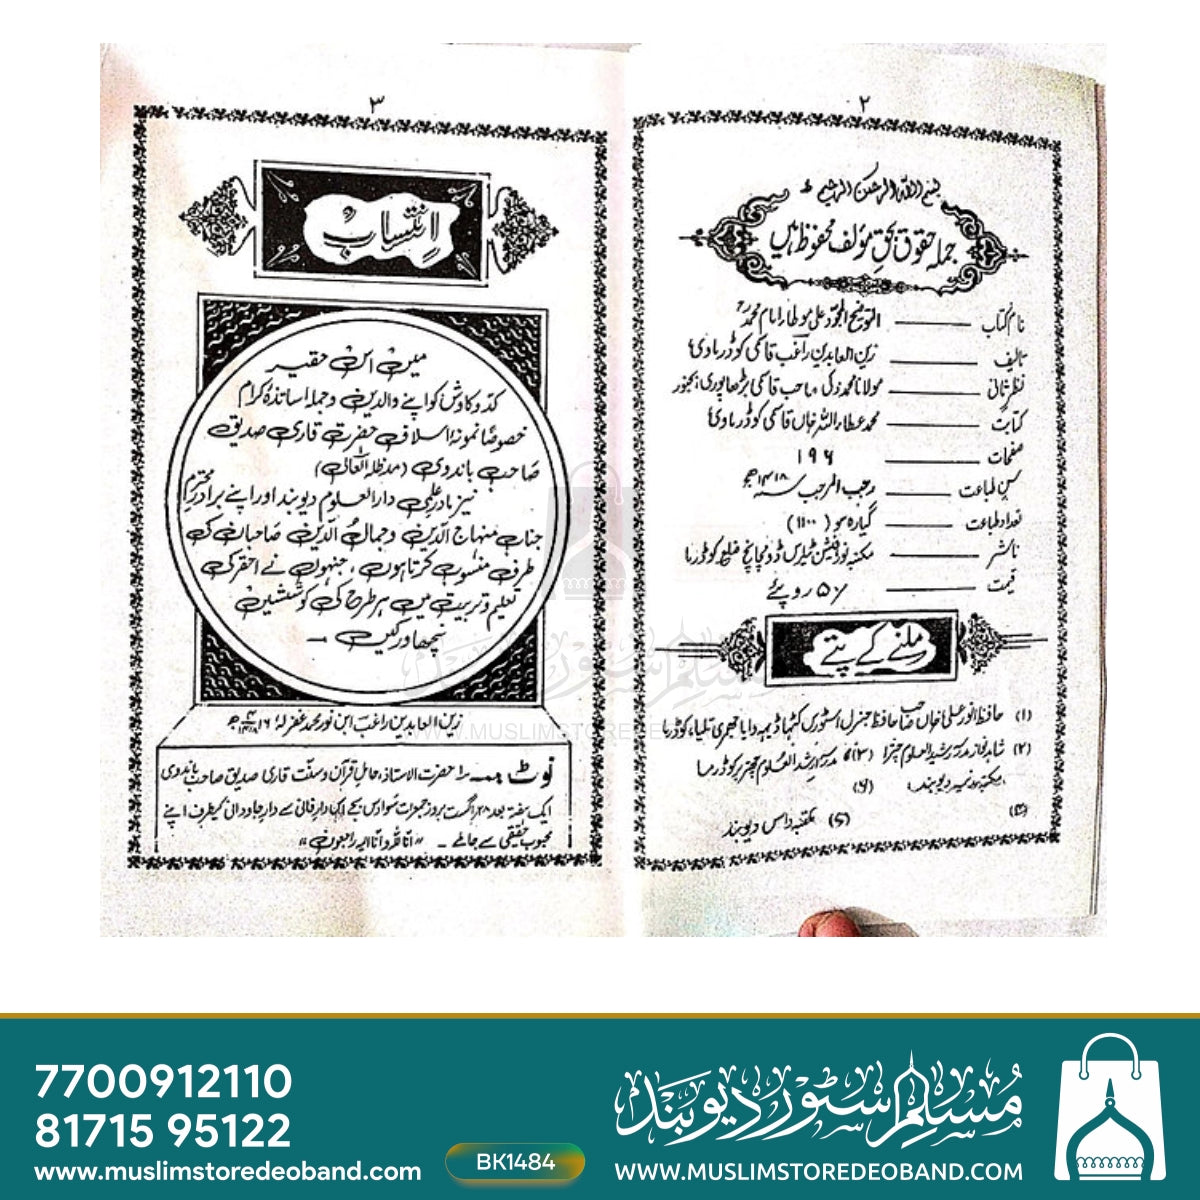 ۲
بسم اللہ الرحمٰن الرحیم
جملہ حقوق بحق مؤلف محفوظ ہیں
نام کتاب ـــــــ التوضیح المجوّد علی موطا امام محمدؒ
تالیف ـــــــ زین العابدین راغب قاسمی کوڈرماوی
نظر ثانی ـــــــ مولانا محمد ذکی صاحب قاسمی بڑھاپوری بجنور
کتابت ـــــــ محمد عطاء اللہ خاں قاسمی کوڈرماوی
صفحات ـــــــ ۱۹۶
سن طباعت ـــــــ رجب المرجب سنہ ۱۴۱۸ھ
تعداد طباعت ـــــــ گیارہ سو (۱۱۰۰)
ناشر ـــــــ مکتبہ نور ضلع کوڈرما
قیمت ـــــــ ۵۰/ روپئے
ملنے کے پتے
(۱) حافظ انور علی خاں صاحب حافظ جنرل اسٹورس تلیا، کوڈرما
(۲) مدرسہ رشید العلوم چترا (۳) مدرسہ رشید العلوم کوڈرما
(۴) مکتبہ دیوبند (۶)
(۵) مکتبہ دیوبند
۳
اِنتساب
میں اس حقیر
کدّ و کاوش کو اپنے والدین و جملہ اساتذۂ کرام
خصوصاً نمونۂ اسلاف حضرت قاری صدیق
صاحب باندوی (مدظلہ العالی)
نیز مادرِ علمی دار العلوم دیوبند اور اپنے برادرِ محترم
جناب منہاج الدین و جمال الدین صاحبان کی
طرف منسوب کرتا ہوں، جنہوں نے احقر کی
تعلیم و تربیت میں ہر طرح کی کوششیں
نچھاور کیں ۔
زین العابدین راغب ابن نور محمد غفرلہ
نوٹ حضرت الاستاذ، حامل قرآن و سنت قاری صدیق صاحب باندوی
ایک ہفتہ بعد ۲۸ اگست بروز جمعرات دار فانی سے دار جاودانی کیطرف اپنے
محبوب حقیقی سے جا ملے ۔ "انا للہ وانا الیہ راجعون"
مسلم سٹور دیوبند
WWW.MUSLIMSTOREDE
7700912110
81715 95122
www.muslimstoredeoband.com
BK1484
مسلم سٹور دیوبند
WWW.MUSLIMSTOREDEOBAND.COM